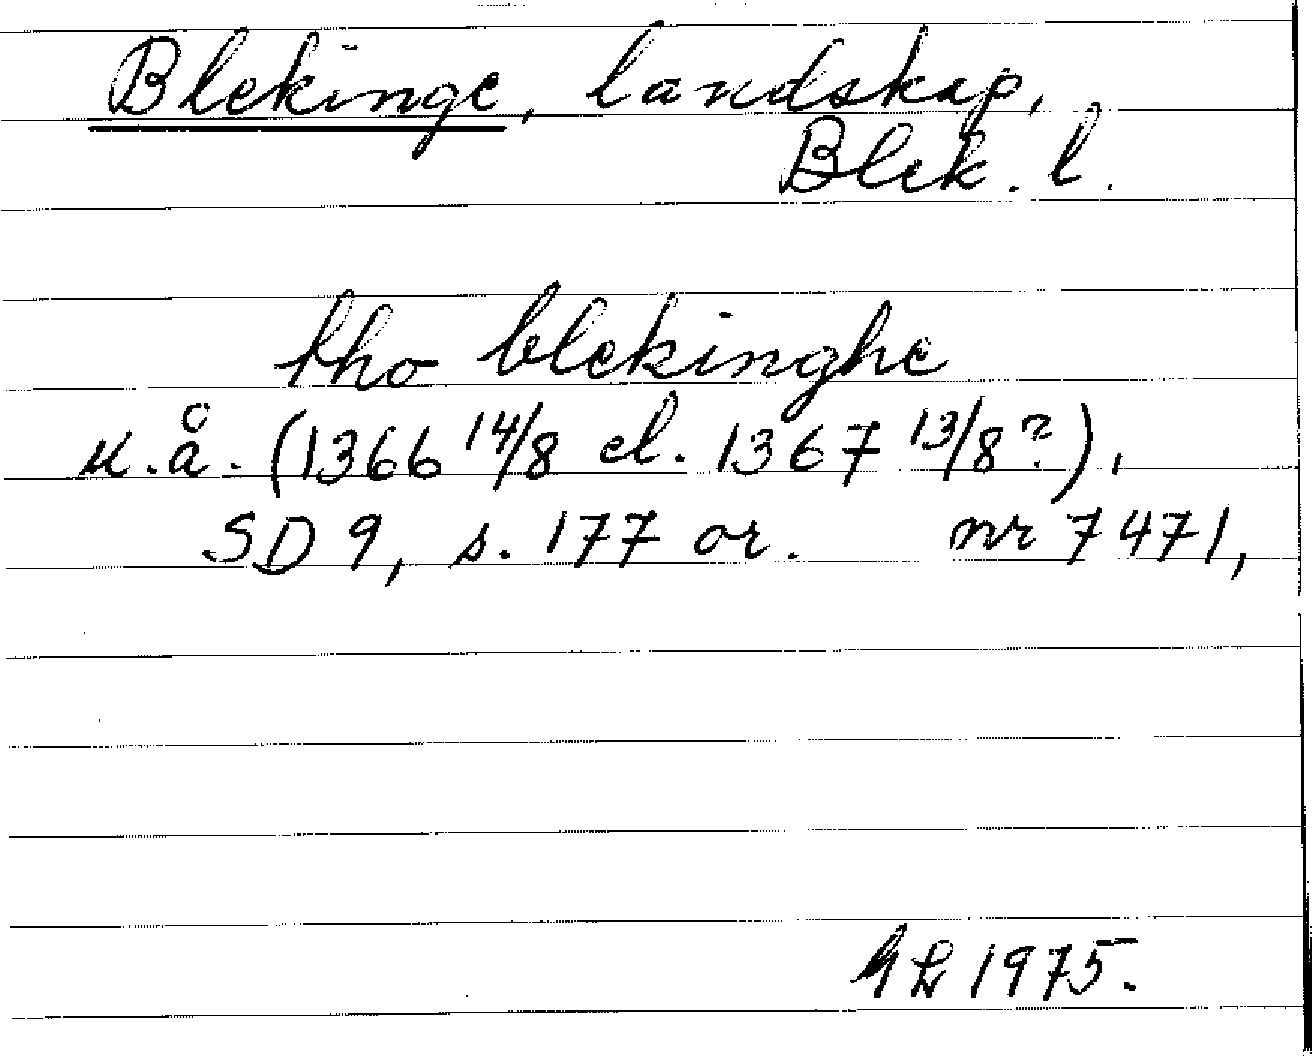 Blekinge, landskap,
Blek. l.
tho blekinghe
u.å. (1366 14/8 el. 1367 13/8?),
SD 9, s. 177 or. nr 7471,
1975.